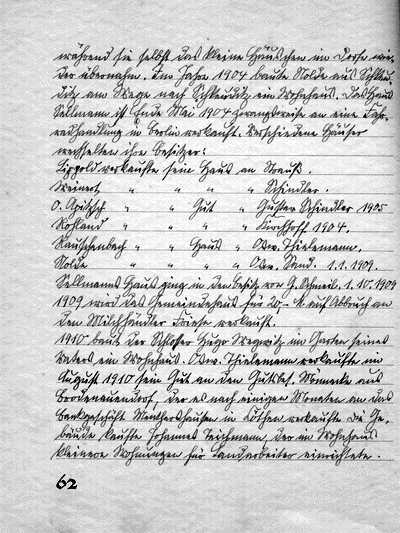 während sie selbst das kleine Häuschen im Dorfe wie-
der übernahm. Im Jahre 1904 baute Nolde aus Schkeu-
ditz am Wege nach Schkeuditz ein Wohnhaus. Das Haus
Sellmann ist Ende Mai 1904 zwangsweise an eine Fahr-
radhandlung in Berlin verkauft. Verschiedene Häuser
wechselten ihre Besitzer:
Lippold verkaufte sein Haus an Strauß.
Weinert " " " " Schindler.
O. " " Gut " Gustav Schindler 1905
Roßland " " " " Kirchhoff 1904.
Rauschenbach " " Haus " Osw. Thielemann.
Nolde " " " " Osw. 1.1.1909.
Sellmanns Haus ging in den Besitz von G. 1.10.1909
1909 wird das Gemeindehaus für 20,- M auf Abbruch an
den Milchhändler verkauft.
1910 baut der Schlosser Hugo im Garten seines
Vaters ein Wohnhaus. Osw. Thielemann verkaufte im
August 1910 sein Gut an den Gutsbes. aus
der es nach einigen Monaten an das
Bankgeschäft in Köthen verkaufte. Die Ge-
bäude kaufte Johannes Teichmann, der im Wohnhaus
kleinere Wohnungen für Landarbeiter einrichtete.
62